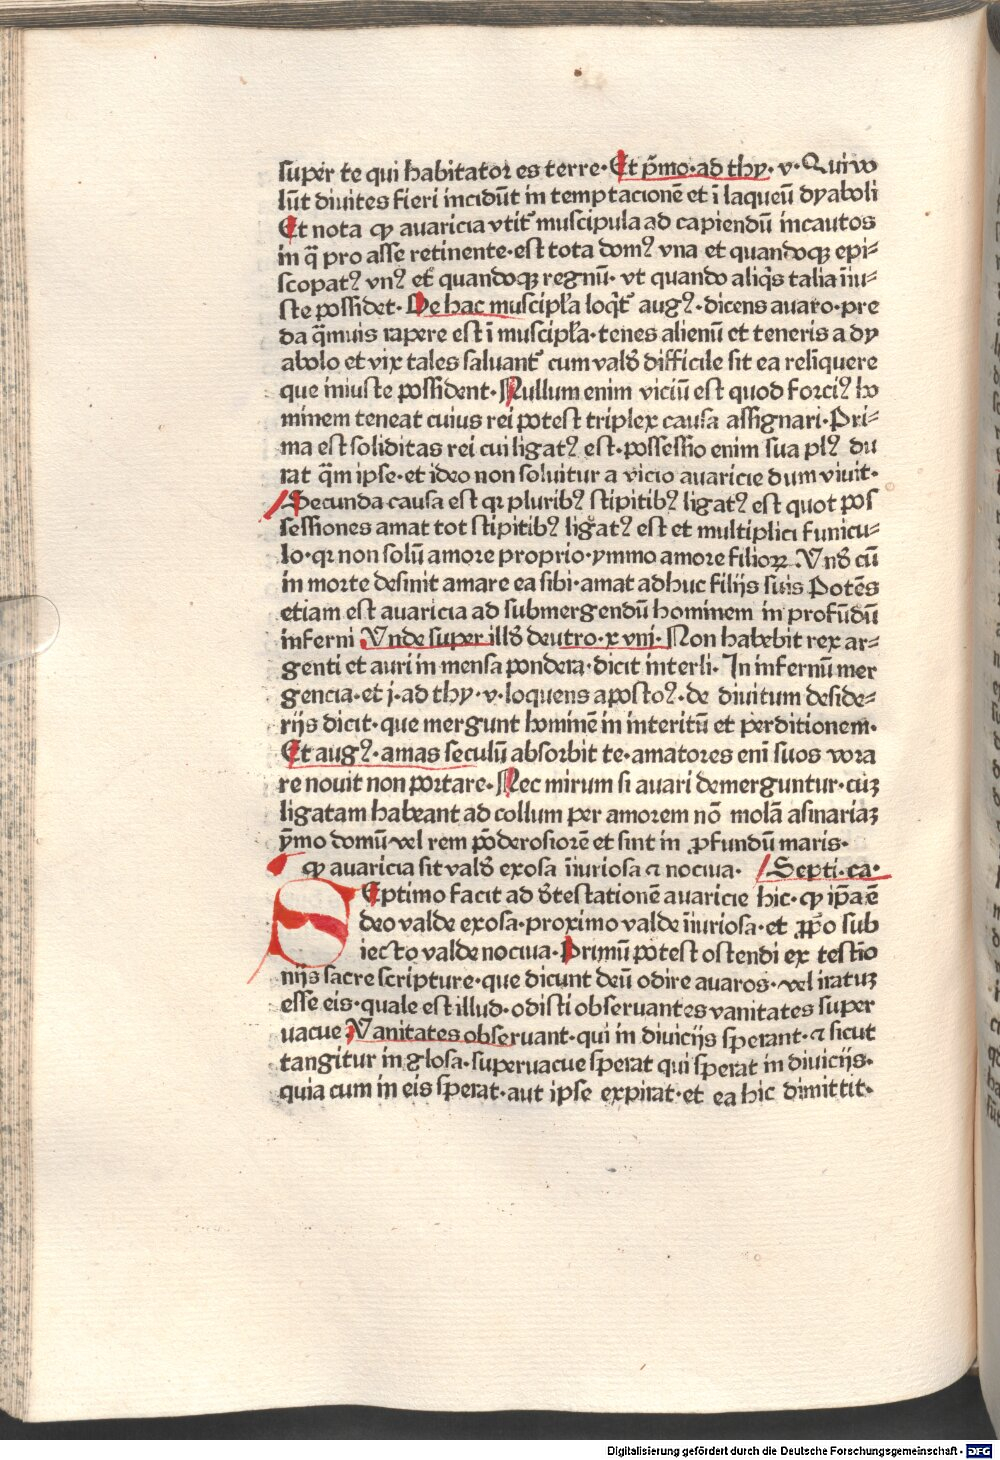 super te qui habitator es terre· Et p̄mo·ad thy· v·Qui vo
lūt diuites fieri incidūt in temptacionē et ī laqueū dyaboli
Et nota ꝙ auaricia vtit᷑ muscipula ad capiendū incautos
in q̄ pro asse retinente·est tota domꝰ vna et quandoqꝫ epi⸗
scopatꝰ vnꝰ et quandoqꝫ regnū· vt quando aliq̄s talia īiu⸗
ste possidet· De hac muscipl̄a loqt᷑ augꝰ·dicens auaro·pre
da q̄muis rapere est ī muscipl̄a·tenes alienū et teneris a dy
abolo et vix tales saluant᷑ cum vald̄ difficile sit ea relīquere
que iniuste possident· Nullum enim viciū est quod forciꝰ ho
minem teneat cuius rei potest triplex causa assignari·Pri⸗
ma est soliditas rei cui ligatꝰ est·possessio enim sua plꝰ du
rat q̄m ipse·et ideo non soluitur a vicio auaricie dum viuit·
Secunda causa est qꝛ pluribꝰ stipitibꝰ ligatꝰ est quot pos
sessiones amat tot stipitibꝰ ligatꝰ est et multiplici funicu⸗
lo·qꝛ non solū amore proprio·ymmo amore filioꝝ Vnd̄ cū
in morte desinit amare ea sibi·amat adhuc filijs suis Potēs
etiam est auaricia ad submergendū hominem in profūdū
inferni Vnde super illd̄ deutro·x vnj· Non habebit rex ar⸗
genti et auri in mensa pondera·dicit interli· In infernū mer
gencia·et j·ad thy·v·loquens apostoꝰ·de diuitum deside⸗
rijs dicit·que mergunt hominē in interitū et perditionem·
Et augꝰ·amas seculū absorbit te·amatores enī suos vora
re nouit non portare· Nec mirum si auari demerguntur·cuꝫ
ligatam habeant ad collum per amorem nō molā asinariaꝫ
ȳmo domū·vel rem pōderosiorē et sint in ꝓfundū maris·
ꝙ auaricia sit vald̄ exosa īiuriosa ⁊ nociua· Septi·ca·
SEptimo facit ad d̄testationē auaricie hic·ꝙ ip̄a ē
deo valde exosa·proximo valde īiuriosa·et ꝓp̄o sub
iecto valde nociua· Primū potest ostendi ex testīo
nijs sacre scripture·que dicunt deū odire auaros·vel iratuꝫ
esse eis·quale est illud·odisti obseruantes vanitates super
uacue Vanitates obseruant·qui in diuicijs sperant·⁊ sicut
tangitur in glosa·superuacue sperat qui sperat in diuicijs·
quia cum in eis sperat·aut ipse expirat·et ea hic dimittit·
Digitalisierung gefördert durch die Deutsche Forschungsgemeinschaft - DFG